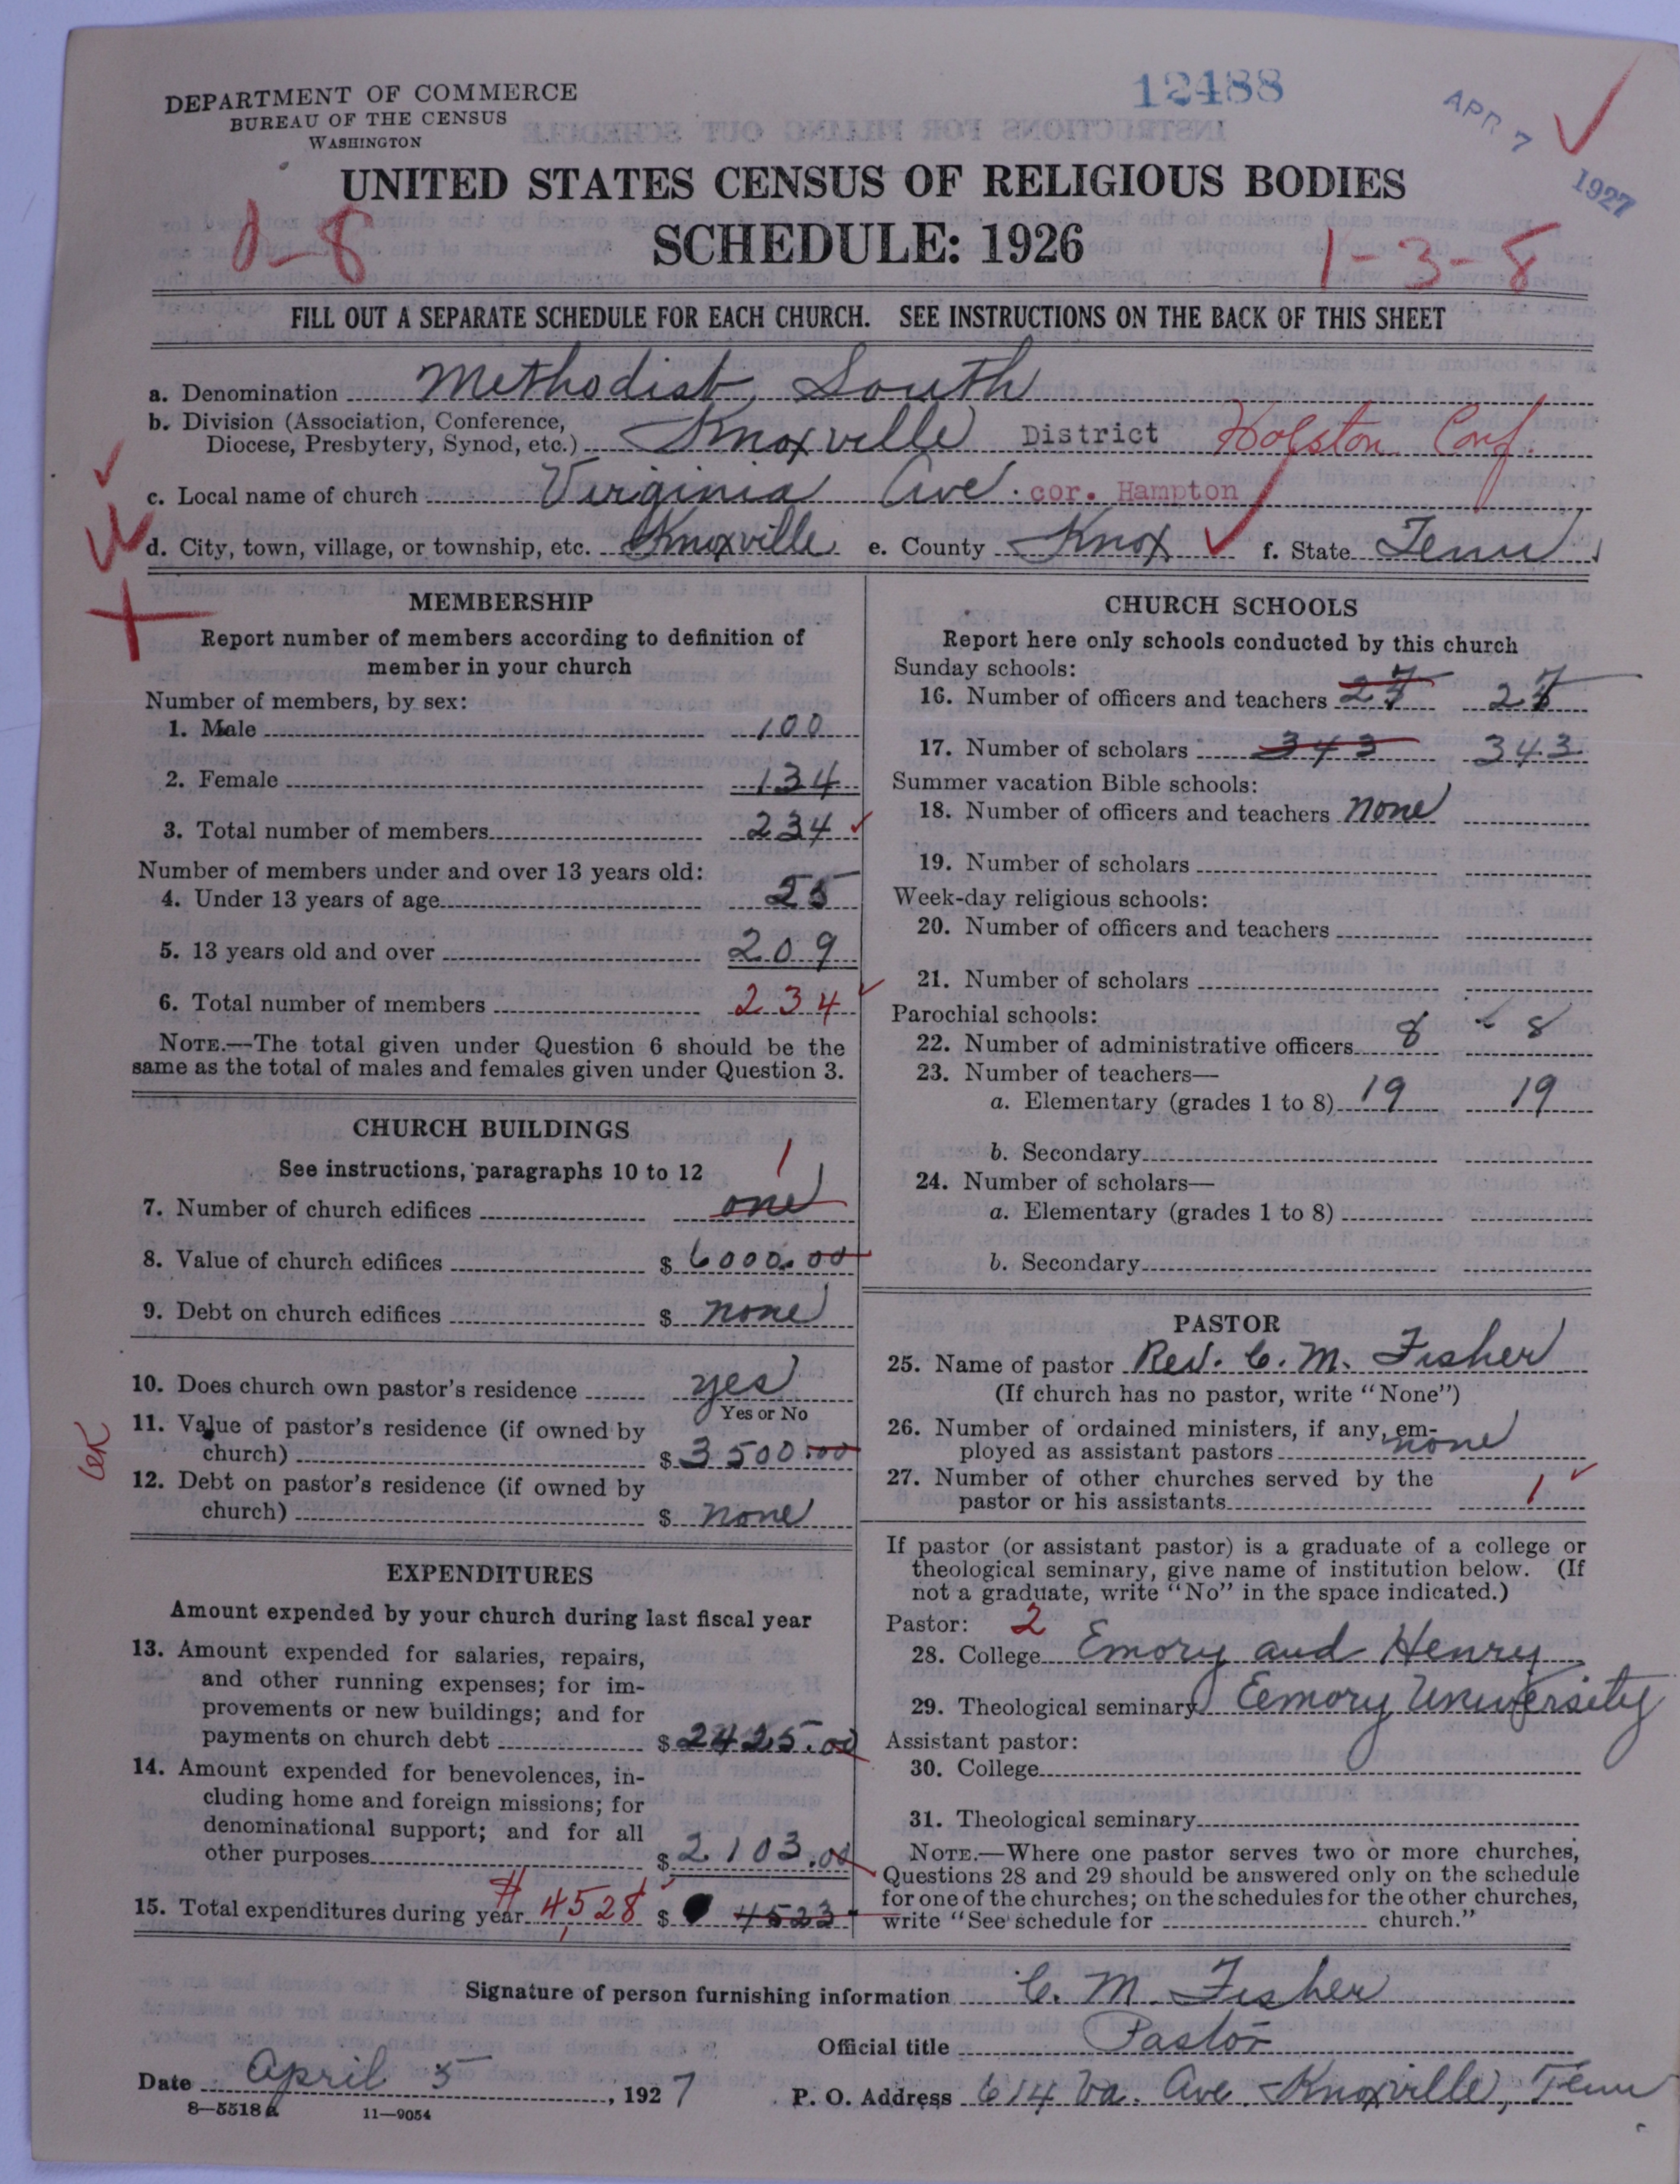 DEPARTMENT OF COMMERCE
BUREAU OF THE CENSUS
WASHINGTON
12488
APR 7 1927
UNITED STATES CENSUS OF RELIGIOUS BODIES
SCHEDULE: 1926
1-3-8
FILL OUT A SEPARATE SCHEDULE FOR EACH CHURCH. SEE INSTRUCTIONS ON THE BACK OF THIS SHEET
a. Denomination Methodist, South
b. Division (Association, Conference,
Diocese, Presbytery, Synod, etc.) Knoxville District Holston Conf.
c. Local name of church Virginia Ave. cor. Hampton
d. City, town, village, or township, etc. Knoxville e. County Knox f. State Tenn
MEMBERSHIP
Report number of members according to definition of
member in your church
Number of members, by sex:
1. Male 100
2. Female 134
3. Total number of members 234
Number of members under and over 13 years old:
4. Under 13 years of age 25
5. 13 years old and over 209
6. Total number of members 234
NOTE.—The total given under Question 6 should be the
same as the total of males and females given under Question 3.
CHURCH BUILDINGS
See instructions, paragraphs 10 to 12 1
7. Number of church edifices one
8. Value of church edifices $ 6000.00
9. Debt on church edifices $ none
10. Does church own pastor's residence yes
Yes or No
11. Value of pastor's residence (if owned by
church) $ 3500.00
12. Debt on pastor's residence (if owned by
church) $ none
EXPENDITURES
Amount expended by your church during last fiscal year
13. Amount expended for salaries, repairs,
and other running expenses; for im-
provements or new buildings; and for
payments on church debt $ 2425.00
14. Amount expended for benevolences, in-
cluding home and foreign missions; for
denominational support; and for all
other purposes $ 2103.00
15. Total expenditures during year # 4,528 $ 4523
CHURCH SCHOOLS
Report here only schools conducted by this church
Sunday schools:
16. Number of officers and teachers 27 27
17. Number of scholars 343 343
Summer vacation Bible schools:
18. Number of officers and teachers none
19. Number of scholars
Week-day religious schools:
20. Number of officers and teachers
21. Number of scholars
Parochial schools:
22. Number of administrative officers 8 - 8
23. Number of teachers—
a. Elementary (grades 1 to 8) 19 19
b. Secondary
24. Number of scholars—
a. Elementary (grades 1 to 8)
b. Secondary
PASTOR
25. Name of pastor Rev. C. M. Fisher
(If church has no pastor, write "None")
26. Number of ordained ministers, if any, em-
ployed as assistant pastors none
27. Number of other churches served by the
pastor or his assistants 1
If pastor (or assistant pastor) is a graduate of a college or
theological seminary, give name of institution below. (If
not a graduate, write "No" in the space indicated.)
Pastor: 2
28. College Emory and Henry
29. Theological seminary Eemory University
Assistant pastor:
30. College
31. Theological seminary
NOTE.—Where one pastor serves two or more churches,
Questions 28 and 29 should be answered only on the schedule
for one of the churches; on the schedules for the other churches,
write "See schedule for church."
Signature of person furnishing information C. M. Fisher
Official title Pastor
Date April 5, 1927 P. O. Address 614 Va. Ave. Knoxville, Tenn
8—5518a 11—9054